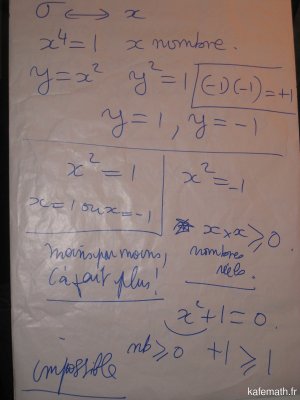 σ ↔ x
x⁴ = 1 x nombre.
y = x² y² = 1 (-1)(-1) = +1
y = 1, y = -1
x² = 1
x = 1 ou x = -1
x² = -1
x × x ≥ 0
nombres
réels.
moins par moins,
ça fait plus!
x² + 1 = 0
nb ≥ 0 +1 ≥ 1
impossible
kafemath.fr